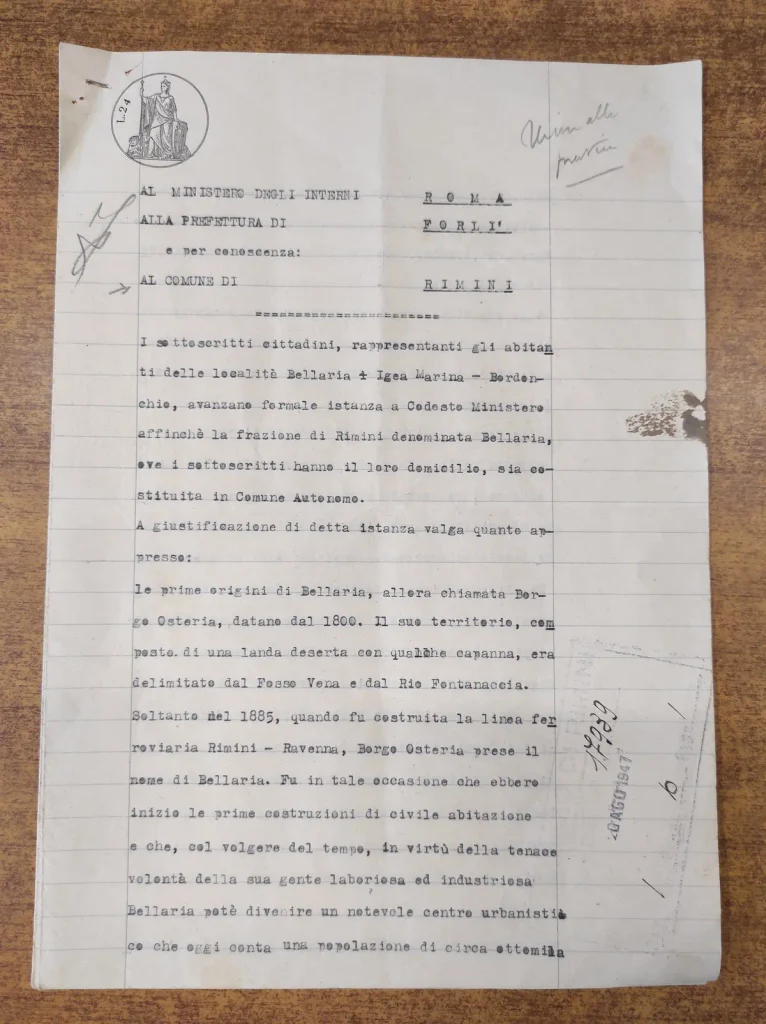 L.24
AL MINISTERO DEGLI INTERNI ROMA
ALLA PREFETTURA DI FORLI'
e per conoscenza:
AL COMUNE DI RIMINI
=======================
I sottoscritti cittadini, rappresentanti gli abitan
ti delle località Bellaria + Igea Marina - Bordon-
chio, avanzano formale istanza a Codesto Ministero
affinchè la frazione di Rimini denominata Bellaria,
ove i sottoscritti hanno il loro domicilio, sia co-
stituita in Comune Autonomo.
A giustificazione di detta istanza valga quanto ap-
presso:
le prime origini di Bellaria, allora chiamata Bor-
go Osteria, datano dal 1800. Il suo territorio, com
posto di una landa deserta con qualche capanna, era
delimitato dal Fosso Vena e dal Rio Fontanaccia.
Soltanto nel 1885, quando fu costruita la linea fer
roviaria Rimini - Ravenna, Borgo Osteria prese il
nome di Bellaria. Fu in tale occasione che ebbero
inizio le prime costruzioni di civile abitazione
e che, col volgere del tempo, in virtù della tenace
volontà della sua gente laboriosa ed industriosa
Bellaria potè divenire un notevole centro urbanisti
co che oggi conta una popolazione di circa ottomila
17939
20 AGO 1947
1 6 1